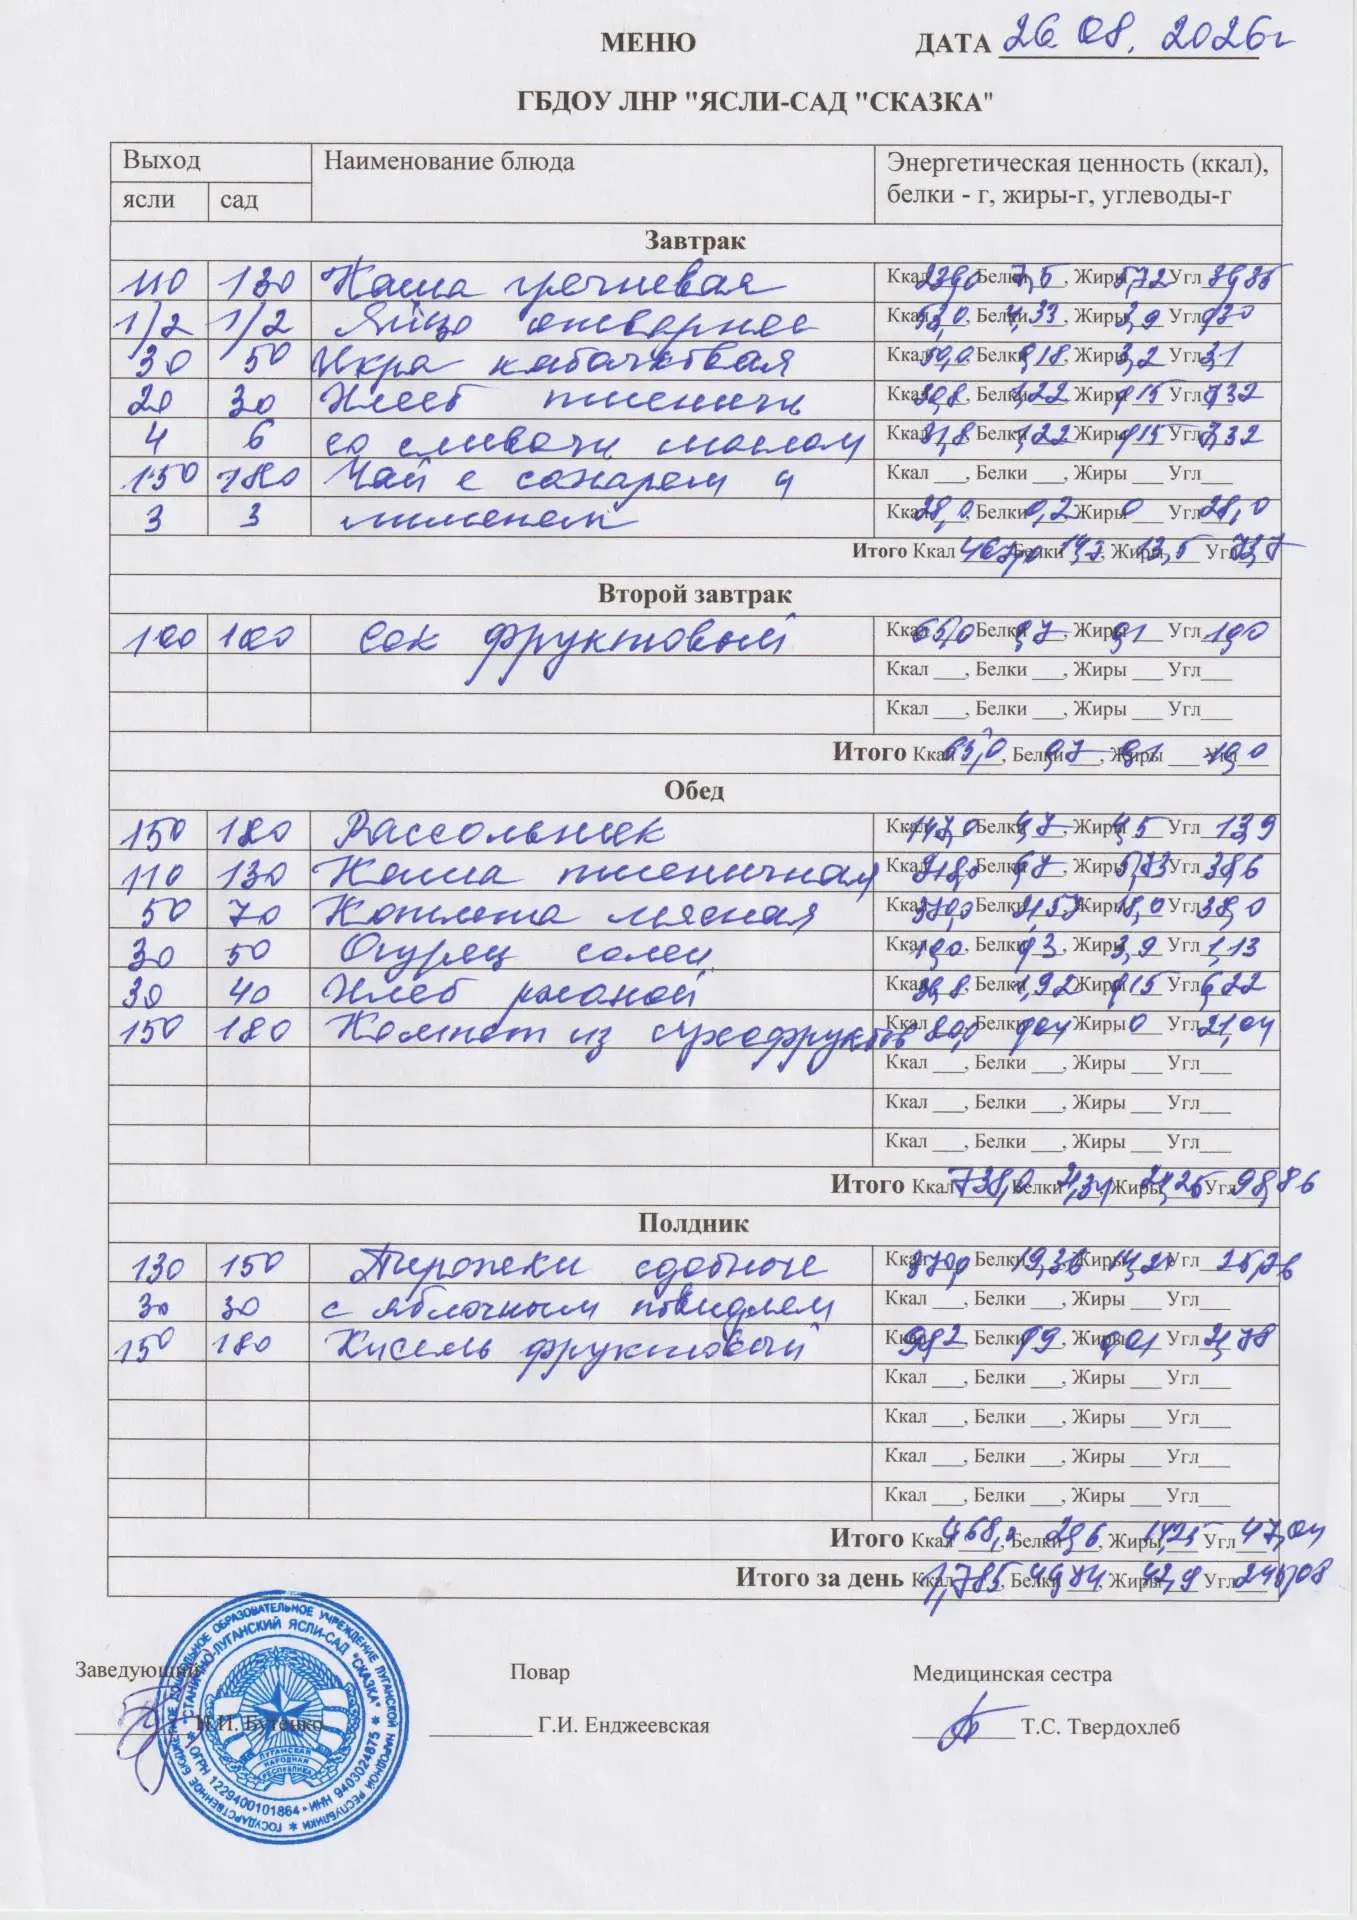 МЕНЮ ДАТА 26.08.2026г
ГБДОУ ЛНР "ЯСЛИ-САД "СКАЗКА"
Выход Наименование блюда Энергетическая ценность (ккал),
ясли сад белки - г, жиры-г, углеводы-г
Завтрак
110 130 Каша гречневая Ккал Белки 7,5, Жиры 5,72 Угл 39,35
1/2 1/2 Яйцо отварное Ккал, Белки 4,33, Жиры 3,9 Угл
30 50 Икра кабачковая Ккал, Белки, Жиры 3,2 Угл 3,1
20 30 Хлеб пшеничн Ккал, Белки 1,22, Жиры 0,15 Угл 7,32
4 6 со сливочн маслом Ккал 31,8, Белки 1,22, Жиры 0,15 Угл 7,32
150 180 Чай с сахаром и Ккал ___, Белки ___, Жиры ___ Угл___
3 3 лимоном Ккал 28,0, Белки 0,2, Жиры 0 Угл 28,0
Итого Ккал 467,0 Белки, Жиры 13,5 Угл 73,7
Второй завтрак
100 100 Сок фруктовый Ккал 65,0, Белки 0,7, Жиры 0,1 Угл 19,0
Ккал ___, Белки ___, Жиры ___ Угл___
Ккал ___, Белки ___, Жиры ___ Угл___
Итого Ккал 65,0, Белки 0,7, Жиры 0,1 Угл 19,0
Обед
150 180 Рассольник Ккал 147,0, Белки 4,7, Жиры 4,5 Угл 13,9
110 130 Каша пшеничная Ккал, Белки 6,7, Жиры 5,83 Угл 38,6
50 70 Котлета мясная Ккал, Белки, Жиры Угл 38,0
30 50 Огурец солен Ккал, Белки 0,3, Жиры 3,9 Угл 1,13
30 40 Хлеб ржаной Ккал, Белки 1,92, Жиры 0,15 Угл 6,22
150 180 Компот из сухофруктов Ккал 80,1, Белки 0,04, Жиры 0 Угл 21,04
Ккал ___, Белки ___, Жиры ___ Угл___
Ккал ___, Белки ___, Жиры ___ Угл___
Ккал ___, Белки ___, Жиры ___ Угл___
Итого Ккал 738,0, Белки, Жиры Угл 98,86
Полдник
130 150 Пирожки сдобные Ккал 370,0, Белки 19,36, Жиры 14,24 Угл 25,26
30 30 с яблочным повидлом Ккал ___, Белки ___, Жиры ___ Угл___
150 180 Кисель фруктовый Ккал 98,2, Белки, Жиры 0,01 Угл
Ккал ___, Белки ___, Жиры ___ Угл___
Ккал ___, Белки ___, Жиры ___ Угл___
Ккал ___, Белки ___, Жиры ___ Угл___
Ккал ___, Белки ___, Жиры ___ Угл___
Итого Ккал 468,2, Белки, Жиры 14,25 Угл 47,04
Итого за день Ккал 1,785, Белки, Жиры 42,9 Угл
Заведующий Повар Медицинская сестра
Н.И. Бутенко Г.И. Енджеевская Т.С. Твердохлеб
ГОСУДАРСТВЕННОЕ БЮДЖЕТНОЕ ДОШКОЛЬНОЕ ОБРАЗОВАТЕЛЬНОЕ УЧРЕЖДЕНИЕ ЛУГАНСКОЙ НАРОДНОЙ РЕСПУБЛИКИ
"СТАНИЧНО-ЛУГАНСКИЙ ЯСЛИ-САД "СКАЗКА"
ОГРН 1229400101864 • ИНН 9403024875
ЛУГАНСКАЯ
НАРОДНАЯ
РЕСПУБЛИКА